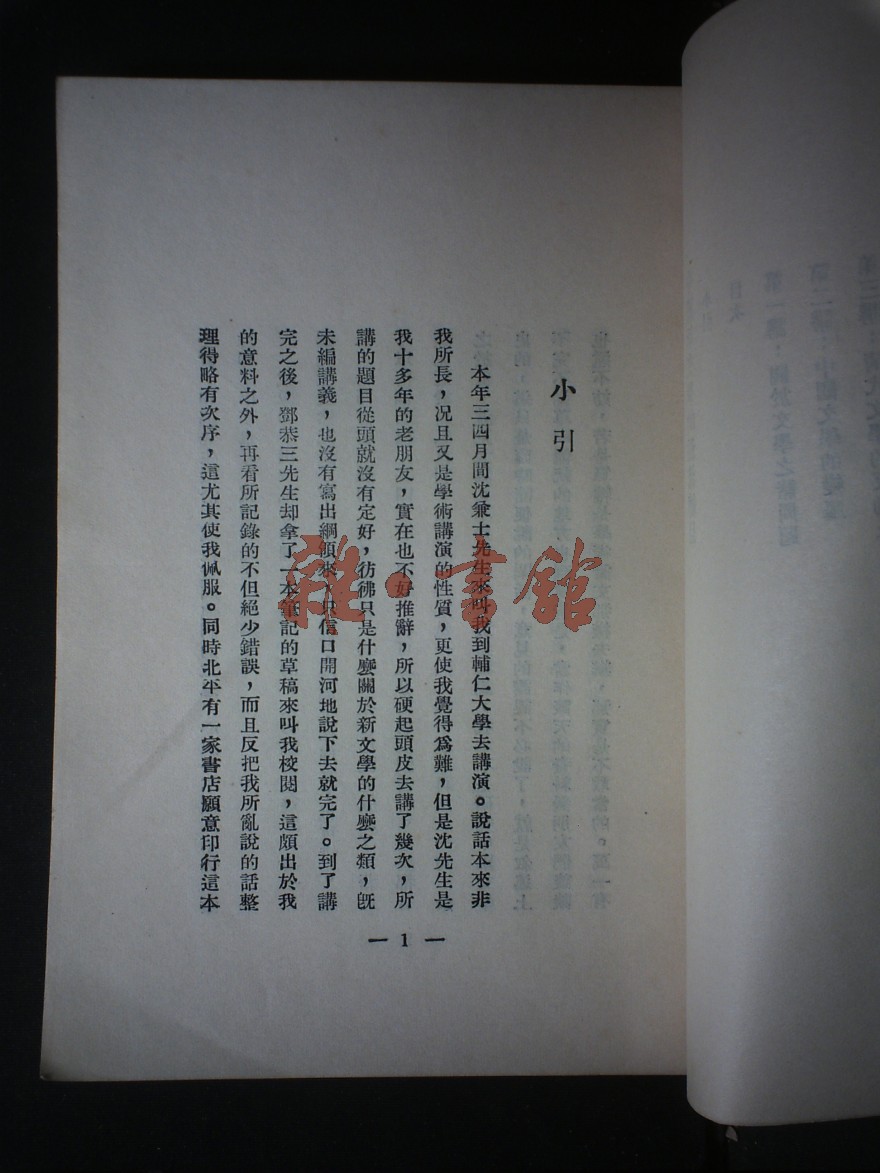 小引
本年三四月間沈兼士先生來叫我到輔仁大學去講演。說話本來非
我所長，況且又是學術講演的性質，更使我覺得爲難，但是沈先生是
我十多年的老朋友，實在也不好推辭，所以硬起頭皮去講了幾次，所
講的題目從頭就沒有定好，彷彿只是什麼關於新文學的什麼之類，旣
未編講義，也沒有寫出綱領來，只信口開河地說下去就完了。到了講
完之後，鄧恭三先生却拿了一本筆記的草稿來叫我校閱，這頗出於我
的意料之外，再看所記錄的不但絕少錯誤，而且反把我所亂說的話整
理得略有次序，這尤其使我佩服。同時北平有一家書店願意印行這本
— 1 —
雜·書館
目次